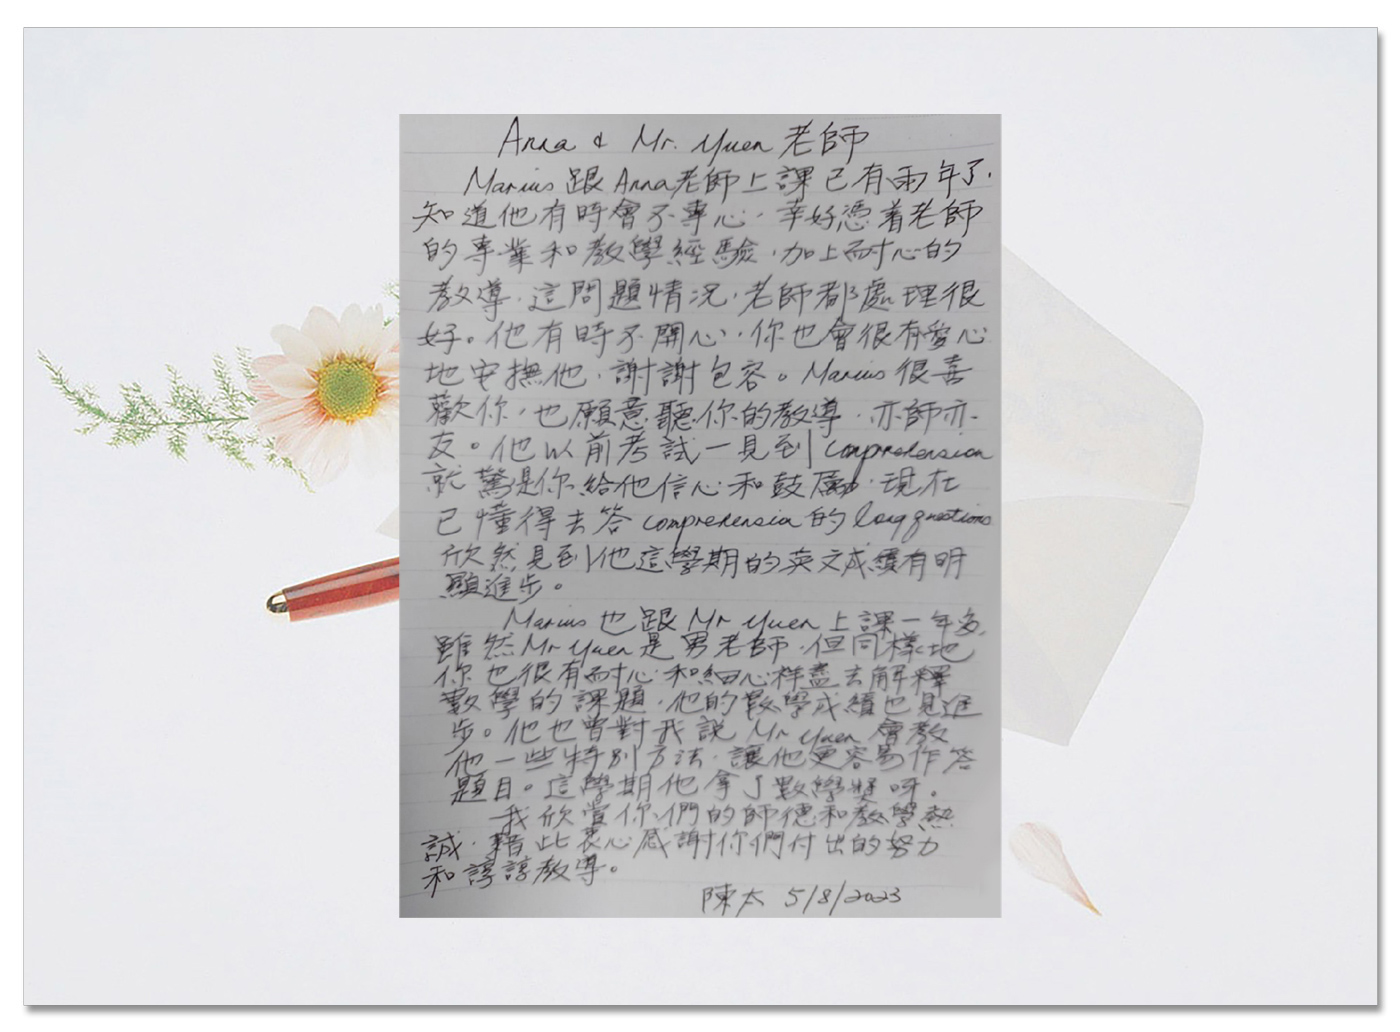 Anna & Mr. Yuen 老師
Marius 跟 Anna老師上課已有兩年了,
知道他有時會不專心, 幸好憑着老師
的專業和教學經驗, 加上耐心的
教導, 這問題情況, 老師都處理很
好。他有時不開心, 你也會很有愛心
地安撫他, 謝謝包容。Marius 很喜
歡你, 也願意聽你的教導, 亦師亦
友。他以前考試一見到 comprehension
就驚,是你給他信心和鼓勵, 現在
已懂得去答 comprehension 的 long questions
欣然見到他這學期的英文成績有明
顯進步。
Marius 也跟 Mr Yuen 上課一年多,
雖然 Mr Yuen 是男老師, 但同樣地
你也很有耐心和細心詳盡去解釋
數學的課題, 他的數學成績也見進
步。他也曾對我說 Mr Yuen 會教
他一些特別方法, 讓他更容易作答
題目。這學期他拿了數學獎呀。
我欣賞你們的師德和教學熱
誠, 藉此衷心感謝你們付出的努力
和諄諄教導。
陳太 5/8/2023